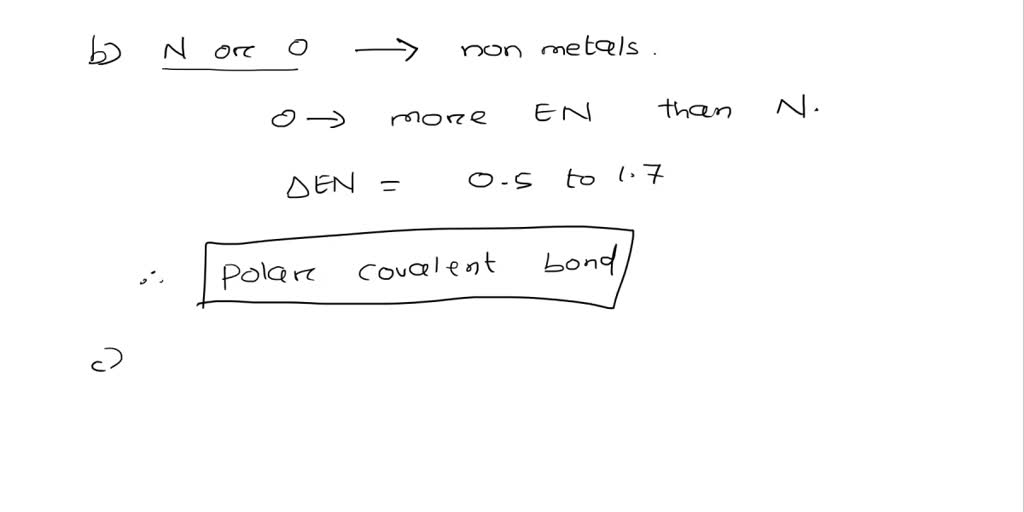 b) N or O → non metals.
O → more EN than N.
ΔEN = 0.5 to 1.7
∴ Polar covalent bond
c)